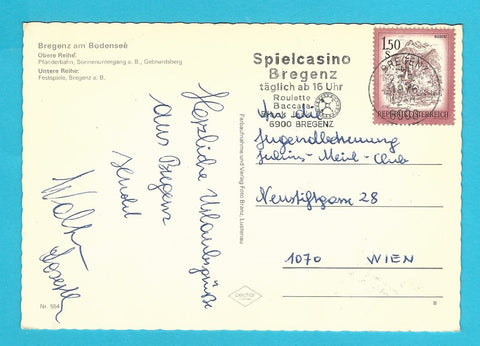 Bregenz am Bodensee
Obere Reihe:
Pfänderbahn, Sonnenuntergang a. B., Gebhardsberg
Untere Reihe:
Festspiele, Bregenz a. B.
Herzliche Urlaubsgrüße
aus Bregenz
sendet
Walter
Nr. 554
Farbaufnahme und Verlag Foto Branz, Lustenau
Spielcasino
Bregenz
täglich ab 16 Uhr
Roulette
Baccara
6900 BREGENZ
1.50
S
REPUBLIK ÖSTERREICH
An die
Jugendbetreuung
Julius-Meinl-Club
Neustiftgasse 28
1070 WIEN
B